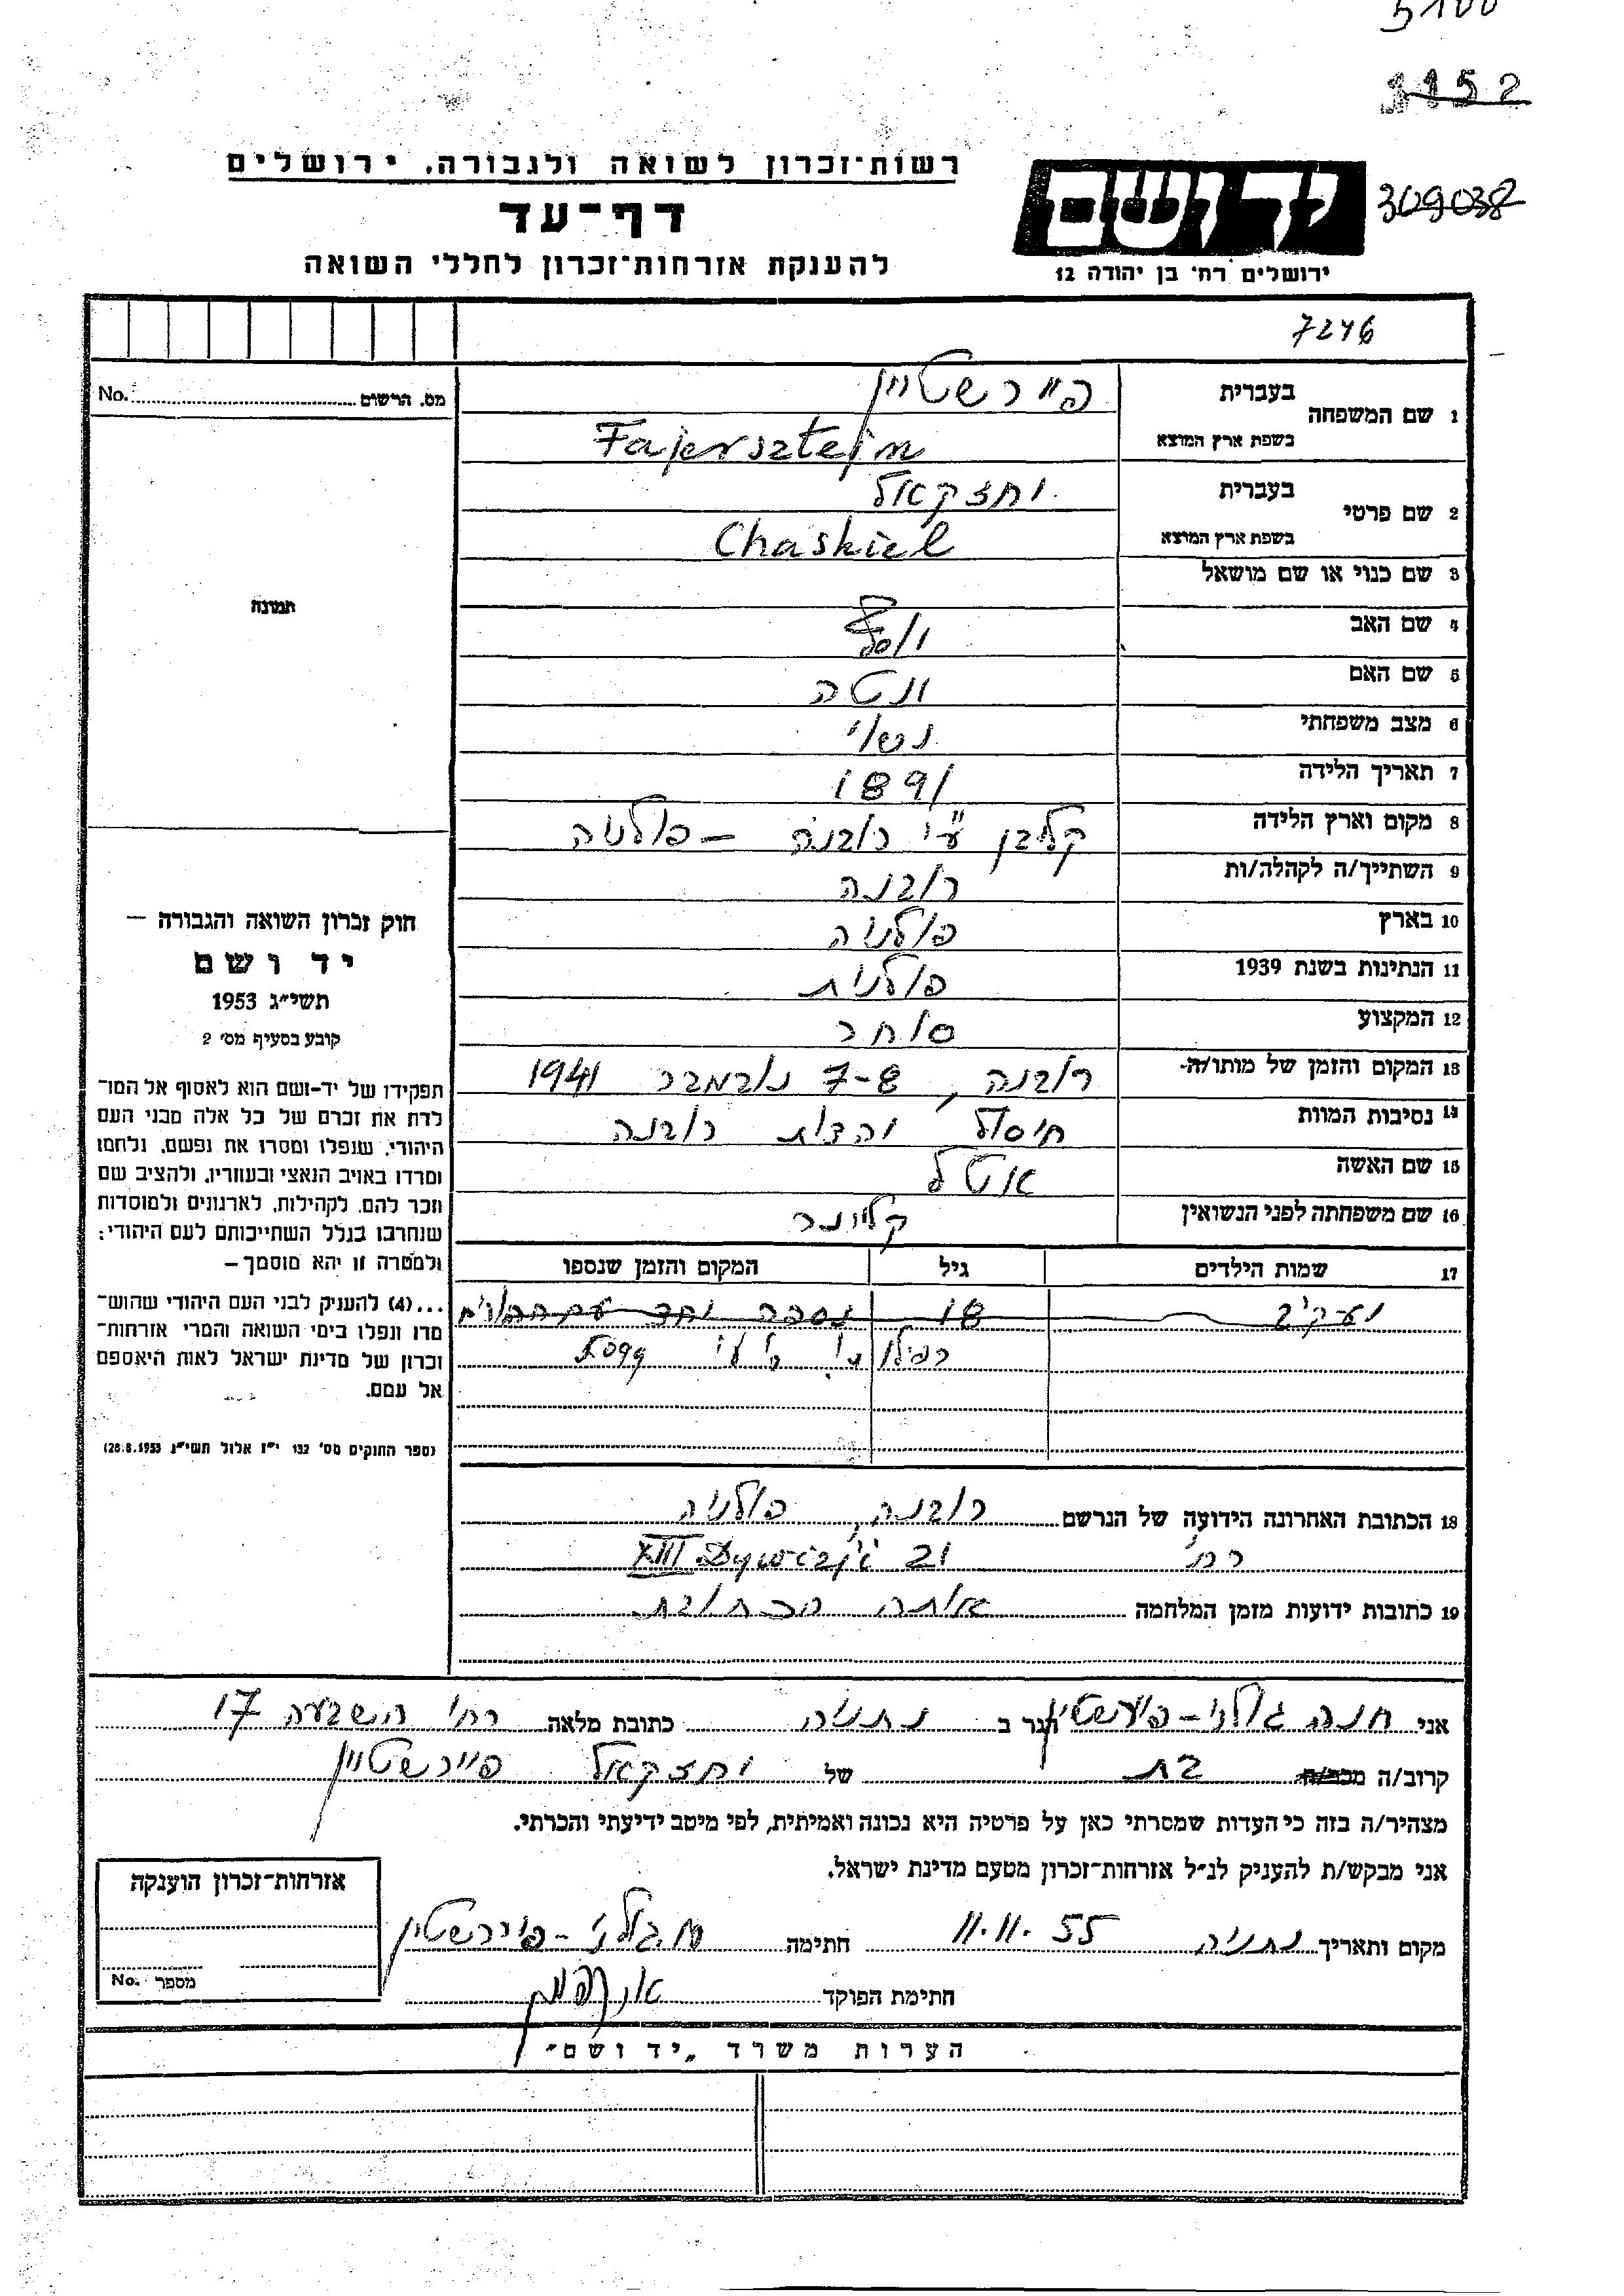 5100
1152
רשות־זכרון לשואה ולגבורה, ירושלים
דף־עד
להענקת אזרחות־זכרון לחללי השואה
יד ושם
309038
ירושלים רח' בן יהודה 12
7246
No. מס. הרשום
1 שם המשפחה בעברית פיירשטיין
בשפת ארץ המוצא Fajersztejn
2 שם פרטי בעברית יחזקאל
בשפת ארץ המוצא Chaskiel
3 שם כנוי או שם מושאל
תמונה
4 שם האב יוסף
5 שם האם יטה
6 מצב משפחתי נשוי
7 תאריך הלידה 1891
8 מקום וארץ הלידה קליבן ע"י רובנה – פולניה
9 השתייך/ה לקהלה/ות רובנה
10 בארץ פולניה
11 הנתינות בשנת 1939 פולנית
12 המקצוע סוחר
13 המקום והזמן של מותו/ה רובנה, 7-8 נובמבר 1941
14 נסיבות המוות חיסול יהדות רובנה
15 שם האשה אטל
16 שם משפחתה לפני הנשואין קליינר
חוק זכרון השואה והגבורה –
יד ושם
תשי"ג 1953
קובע בסעיף מס' 2
תפקידו של יד-ושם הוא לאסוף אל המו־
לדת את זכרם של כל אלה מבני העם
היהודי, שנפלו ומסרו את נפשם, נלחמו
ומרדו באויב הנאצי ובעוזריו, ולהציב שם
וזכר להם, לקהילות, לארגונים ולמוסדות
שנחרבו בגלל השתייכותם לעם היהודי;
ולמטרה זו יהא מוסמך –
...(4) להעניק לבני העם היהודי שהוש־
מדו ונפלו בימי השואה והמרי אזרחות־
זכרון של מדינת ישראל לאות היאספם
אל עמם.
(ספר החוקים מס' 132 י"ז אלול תשי"ג 28.8.1953)
17 שמות הילדים גיל המקום והזמן שנספו
יעקב 18 נספה יחד עם ההורים
18 הכתובת האחרונה הידועה של הנרשם רובנה, פולניה
רח' XIII Dywizji 21
19 כתובות ידועות מזמן המלחמה אותה הכתובת
אני חנה גולני-פיירשטיין הגר ב נתניה כתובת מלאה רח' השבעה 17
קרוב/ה מכר/ה בת של יחזקאל פיירשטיין
מצהיר/ה בזה כי העדות שמסרתי כאן על פרטיה היא נכונה ואמיתית, לפי מיטב ידיעתי והכרתי.
אני מבקש/ת להעניק לנ"ל אזרחות־זכרון מטעם מדינת ישראל.
מקום ותאריך נתניה 11.11.55 חתימה ח. גולני-פיירשטיין
חתימת הפוקד
אזרחות־זכרון הוענקה
מספר No.
הערות משרד „יד ושם"